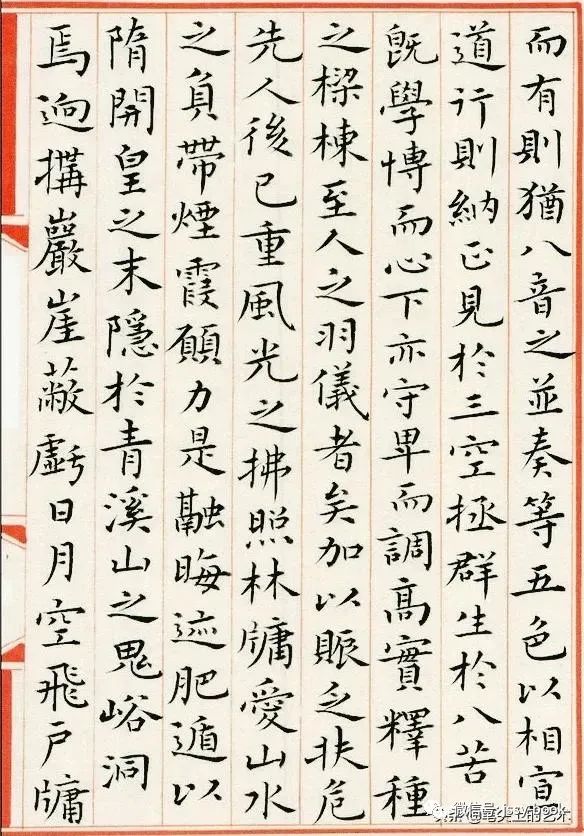 而有則猶八音之並奏等五色以相宣
道行則納正見於三空拯群生於八苦
既學愽而心下亦守卑而調高實釋種
之樑棟至人之羽儀者矣加以賑乏扶危
先人後已重風光之拂照林牖愛山水
之負帶煙霞願力是融晦迹肥遁以
隋開皇之末隱於青溪山之鬼峪洞
焉迥搆巖崖蔽虧日月空飛户牖
微信号: jssy-book